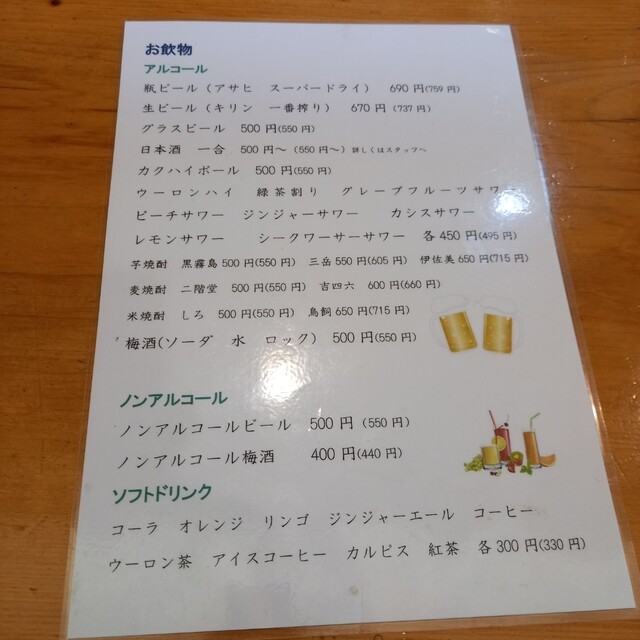 お飲物
アルコール
瓶ビール（アサヒ　スーパードライ）　690 円(759 円)
生ビール（キリン　一番搾り）　670 円（737 円）
グラスビール　500 円(550 円)
日本酒　一合　500 円～（550 円～）詳しくはスタッフへ
カクハイボール　500 円(550 円)
ウーロンハイ　緑茶割り　グレープフルーツサワー
ピーチサワー　ジンジャーサワー　カシスサワー
レモンサワー　シークワーサーサワー　各 450 円(495 円)
芋焼酎　黒霧島 500 円(550 円)　三岳 550 円(605 円)　伊佐美 650 円(715 円)
麦焼酎　二階堂　500 円(550 円)　吉四六　600 円(660 円)
米焼酎　しろ　500 円(550 円)　鳥飼 650 円(715 円)
梅酒(ソーダ　水　ロック)　500 円(550 円)
ノンアルコール
ノンアルコールビール　500 円（550 円)
ノンアルコール梅酒　400 円(440 円)
ソフトドリンク
コーラ　オレンジ　リンゴ　ジンジャーエール　コーヒー
ウーロン茶　アイスコーヒー　カルピス　紅茶　各 300 円(330 円)